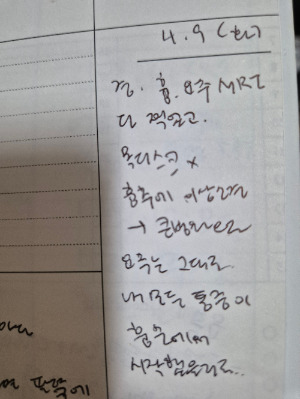 4.9 (화)
경.흉.요추 MRI
다 찍었고.
목디스크 x
흉추에 이상소견
→ 큰병원으로
요추는 그대로.
내 모든 통증이
흉추에서
시작했을지도..
에